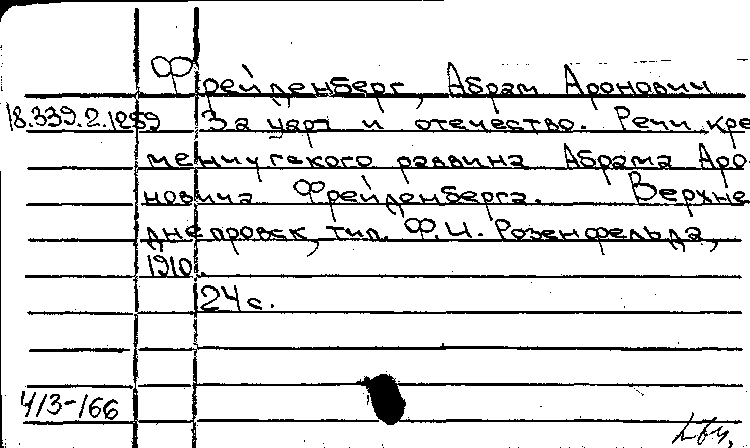 Фрейденберг, Абрам Аронович
18.339.2.1259 За царя и отечество. Речи кре
менчугского раввина Абрама Аро
новича Фрейденберга. Верхне
днепровск, тип. Ф.И. Розенфельда,
1910.
24 с.
413-166